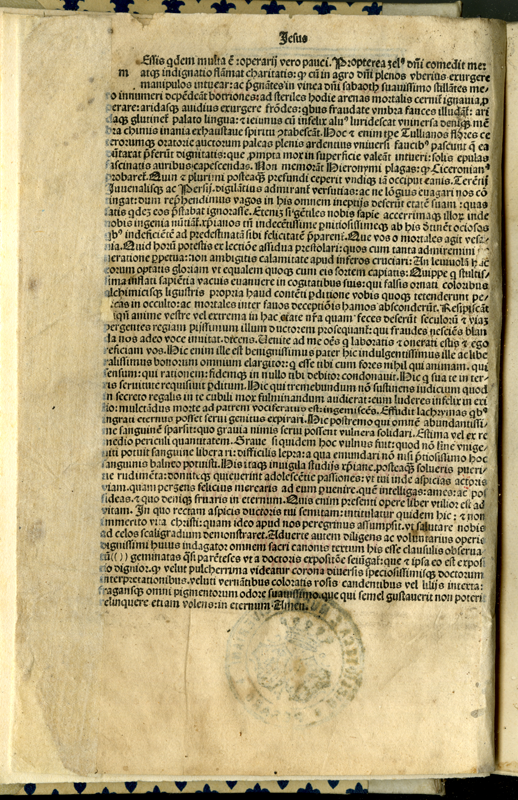 Jesus
Essis qdem multa ē: operarij vero pauci. Propterea zelꝰ dn̄i comedit me:
m atqꝫ indignatio flāmat charitatis: qꝫ cū in agro dn̄i plenos vberius exurgere
manipulos intuear: ac pgnātes in vinea dn̄i sabaoth suauissimo stillātes me-
ro innumeri depēdeāt botriones: ad steriles hodie arenas mortalis cernit ignauia
erare: aridasqꝫ audius exurgere frōdes: qbus fraudate vmbra fauces illudāt: ari
daqꝫ glutinet palato lingua: et ieiunus cū infelix aluꝰ luridescat vniuersa deniqꝫ mē
bra chimis inania exhaustaue spiritu ptabescāt. Hoc et enim ipse Tullianos flores ce
terorumqꝫ oratorie auctorum paleas plenis ardentius vniuersi faucibꝰ pascunt
dūtaxat pferūt dignitatis: que prompta mox in superficie valeāt intueri: solis epulas
fascinatis auribus capescendas. Non memorāt Hieronymi plagas: qꝫ Ciceronianꝰ
probaret. Quin et plurimi posteaqꝫ prefundi ceperit vndiqꝫ iā occiput canis. Terētij
Juuenalisqꝫ ac Persij digilātius admirant versutias: ac ne lōgius euagari nos cō
tingat: dum reprehendinus vagos in his omnem ineptijs deserūt etatē suam: quas
satis qdez eos pstabat ignorasse. Etenis si gētiles nobis sapie accerrimaqꝫ illoꝝ inde
nobis ingenia nūtiāt
qbꝰ indeficiētē ad predestinatā sibi felicitatē pparent. Que vos o mortales agit vesa
nia. Quid horū potestis et lectiōe assidua prestolari: quos cum tanta admiremini
neratione ppetua: non ambitigis calamitate apud inferos cruciari: An leuuolā hac
eorum optatis gloriam vt equalem quoqꝫ cum eis sortem capiatis: Quippe q stultis-
sima inflati sapiētia vacuis euanuere in cogitatibus suis: qui falsis ornati coloribus
alchimicisqꝫ ligustris propria haud contēti pditione vobis quoqꝫ tetenderunt pe-
dicas in occulto: ac mortales inter fauos deceptiōis hamos absconderūt. Respiscāt
iqn̄ anime vestre vel extrema in hac etate nr̄a quam feces deserūt seculorū et viaꝫ
pergentes regiam pijssimum illum ductorem prosequant: qui fraudes nesciēs blan
da nos adeo voce inuitat: dicens. Uenite ad me oēs q laboratis et onerati estis et ego
reficiam vos. Hic enim ille est benignissimus pater hic indulgentissimus ille ac libe
ralissimus bonorum omnium elargitor: q esse tibi cum fores nihil qui animam. qui
sensum: qui rationem: fidemqꝫ in nullo tibi debitor condonauit. Hic q sua te in ter-
ris seruitute requisiuit pditum. Hic qui tremebundum nō sustinens iudicium quod
in secreto regalis in te cubili mox fulminandum audierat: cum luderes infelix in exi
lio: multādus morte ad patrem vociferatus est: ingemiscēs. Effudit lachrymas qbꝰ
ingrati eternus posset serui genitus expirari. Hic postremo qui omnē abundantissi-
me sanguinē sparsit: quo grauia nimis serui possent vulnera solidari. Estima vel ex re
medio periculi quantitatem. Graue siquidem hoc vulnus fuit: quod nō sine vnige-
niti potuit sanguine liberari: difficilis lepra: a qua emundari nō nisi ptiosissimo hoc
sanguinis balneo potuisti. His itaqꝫ inuigila studijs xpiane. posteaqꝫ solueris pueri-
tie rudimēta: donitisqꝫ quieuerint adolescētie passiones: vt tui inde aspicias actoris
viam. quam pergens felicius mercaris ad eum puenire. quē intelligas: ames: ac pos
sideas. et quo deniqꝫ fruaris in eternum. Quis enim presenti opere liber vtilior est ad
vitam. In quo rectam aspicis ductoris tui semitam: intitulatur quidem hic: et non
immerito vita christi: quam ideo apud nos peregrinus assumpsit. vt saluare nobis
ad celos scaligradium demonstraret. Aduerte autem diligens ac voluntarius operis
dignissimi huius indagator: omnem sacri canonis textum his esse clausulis obserua
tū (()) geminatas qsi parētes: vt a doctoris expositōe seiūgat: que et ipsa eo est exposi
tio dignior. qꝫ velut pulcherrima videatur corona diuersis speciosissimisqꝫ doctorum
interpretationibus. veluti vernātibus coloratis rosis candentibus vel lilijs intexta:
fragansqꝫ omni pigmentorum odore suauissimo. que qui semel gustauerit non poterit
relinquere etiam volens: in eternum Amen.